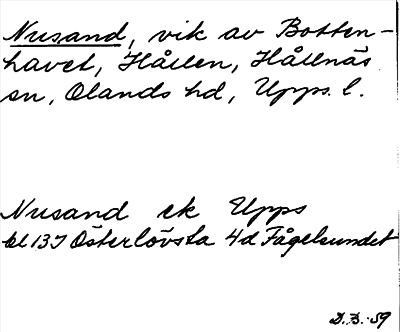 Nusand, vik av Botten-
havet, Hållen, Hållnäs
sn, Olands hd, Upps. l.
Nusand ek Upps
bl 137 Österlövsta 4d Fågelsundet
D.B. 59